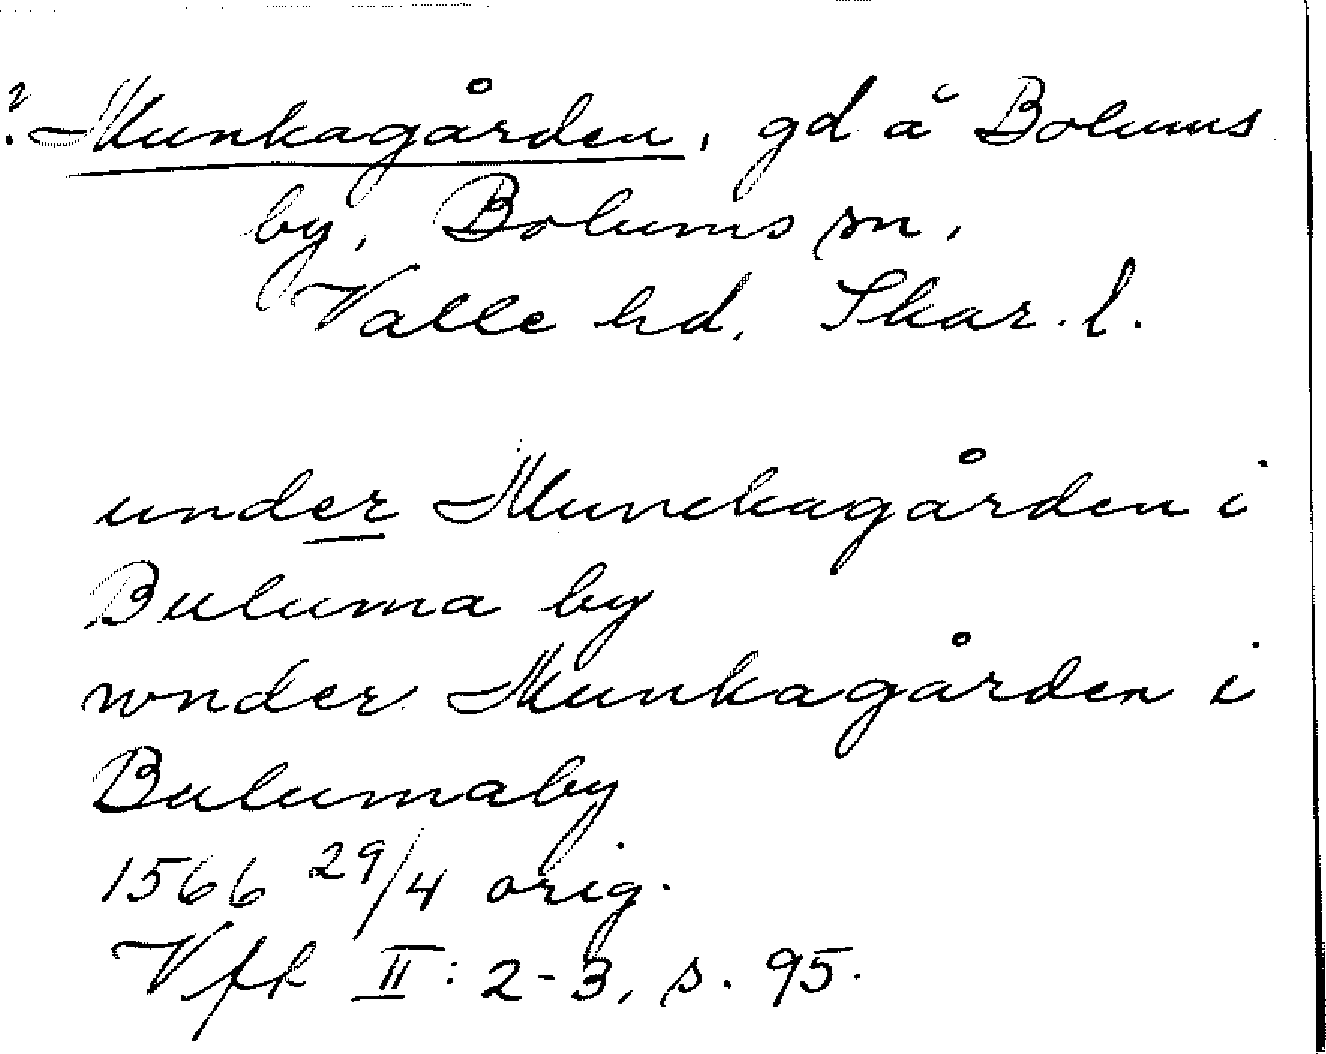 ? Munkagården, gd å Bolums
by, Bolums sn,
Valle hd, Skar. l.
under Munckagården i
Buluma by
wnder Munkagården i
Bulumaby
1566 29/4 orig.
Vfk II: 2-3, s. 95.